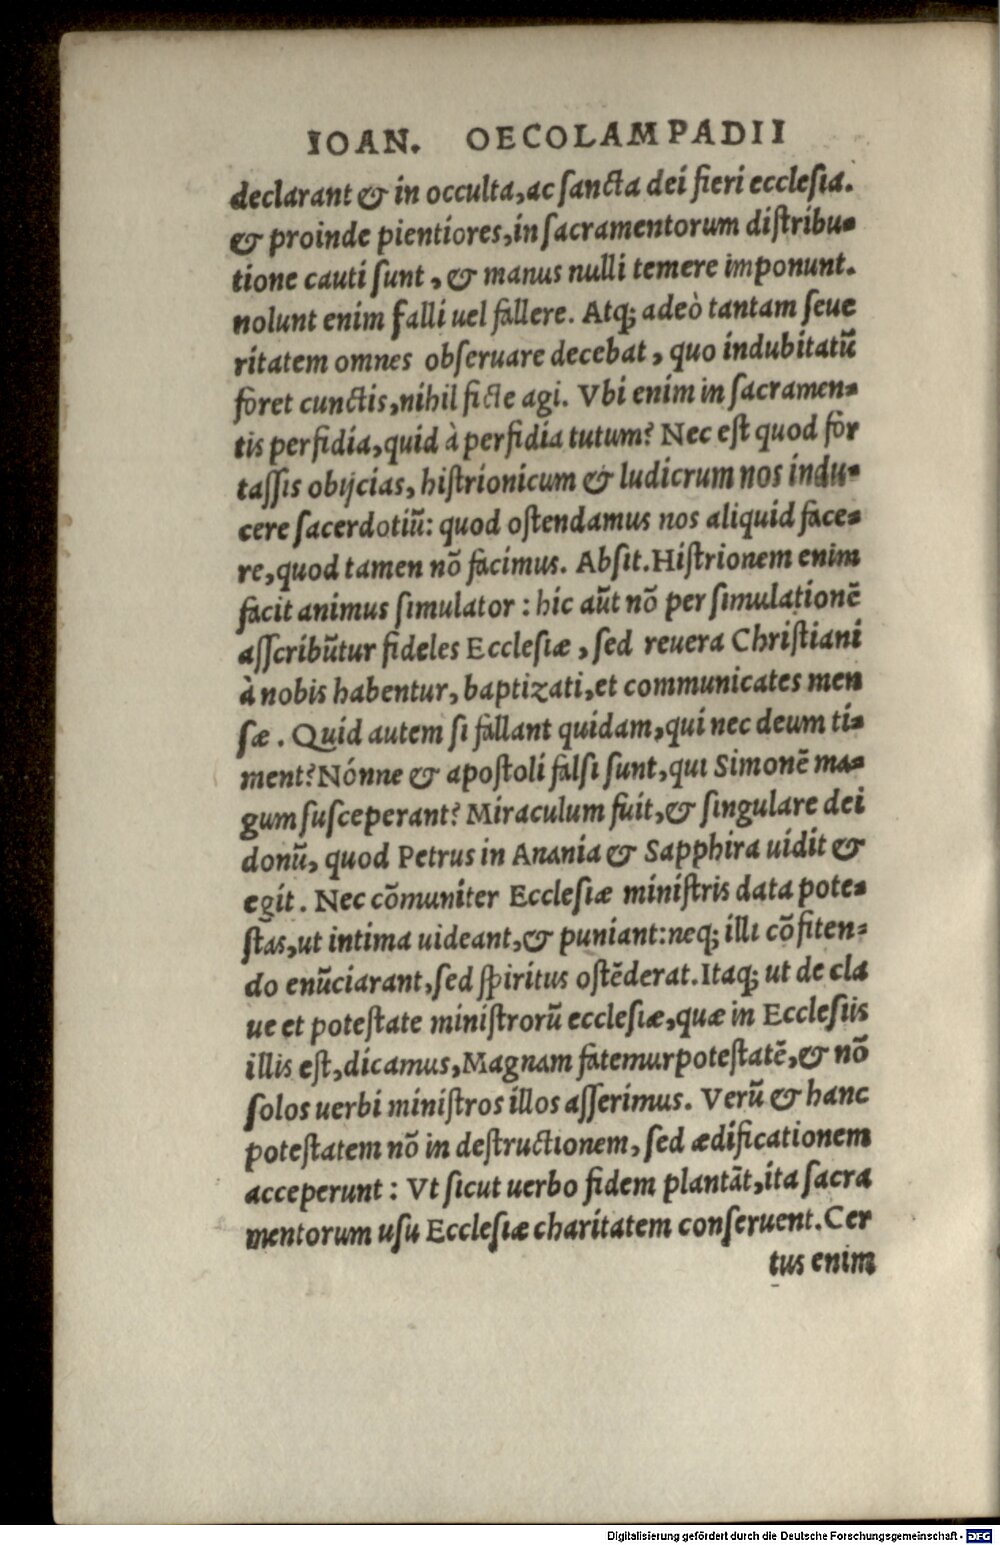 IOAN. OECOLAMPADII
declarant & in occulta, ac sancta dei fieri ecclesia.
& proinde pientiores, in sacramentorum distribu-
tione cauti sunt, & manus nulli temere imponunt.
nolunt enim falli uel fallere. Atq; adeò tantam seue
ritatem omnes obseruare decebat, quo indubitatũ
foret cunctis, nihil ficte agi. Vbi enim in sacramen-
tis perfidia, quid à perfidia tutum? Nec est quod for
tassis obijcias, histrionicum & ludicrum nos indu-
cere sacerdotiũ: quod ostendamus nos aliquid face-
re, quod tamen nõ facimus. Absit. Histrionem enim
facit animus simulator: hic aũt nõ per simulationẽ
asscribũtur fideles Ecclesiæ, sed reuera Christiani
à nobis habentur, baptizati, et communicates men
sæ. Quid autem si fallant quidam, qui nec deum ti-
ment? Nónne & apostoli falsi sunt, qui Simonẽ ma-
gum susceperant? Miraculum fuit, & singulare dei
donũ, quod Petrus in Anania & Sapphira uidit &
egit. Nec cõmuniter Ecclesiæ ministris data pote-
stas, ut intima uideant, & puniant: neq; illi cõfiten-
do enũciarant, sed spiritus ostẽderat. Itaq; ut de cla
ue et potestate ministrorũ ecclesiæ, quæ in Ecclesiis
illis est, dicamus, Magnam fatemur potestatẽ, & nõ
solos uerbi ministros illos asserimus. Verũ & hanc
potestatem nõ in destructionem, sed ædificationem
acceperunt: Vt sicut uerbo fidem plantãt, ita sacra
mentorum usu Ecclesiæ charitatem conseruent. Cer
tus enim
Digitalisierung gefördert durch die Deutsche Forschungsgemeinschaft - DFG